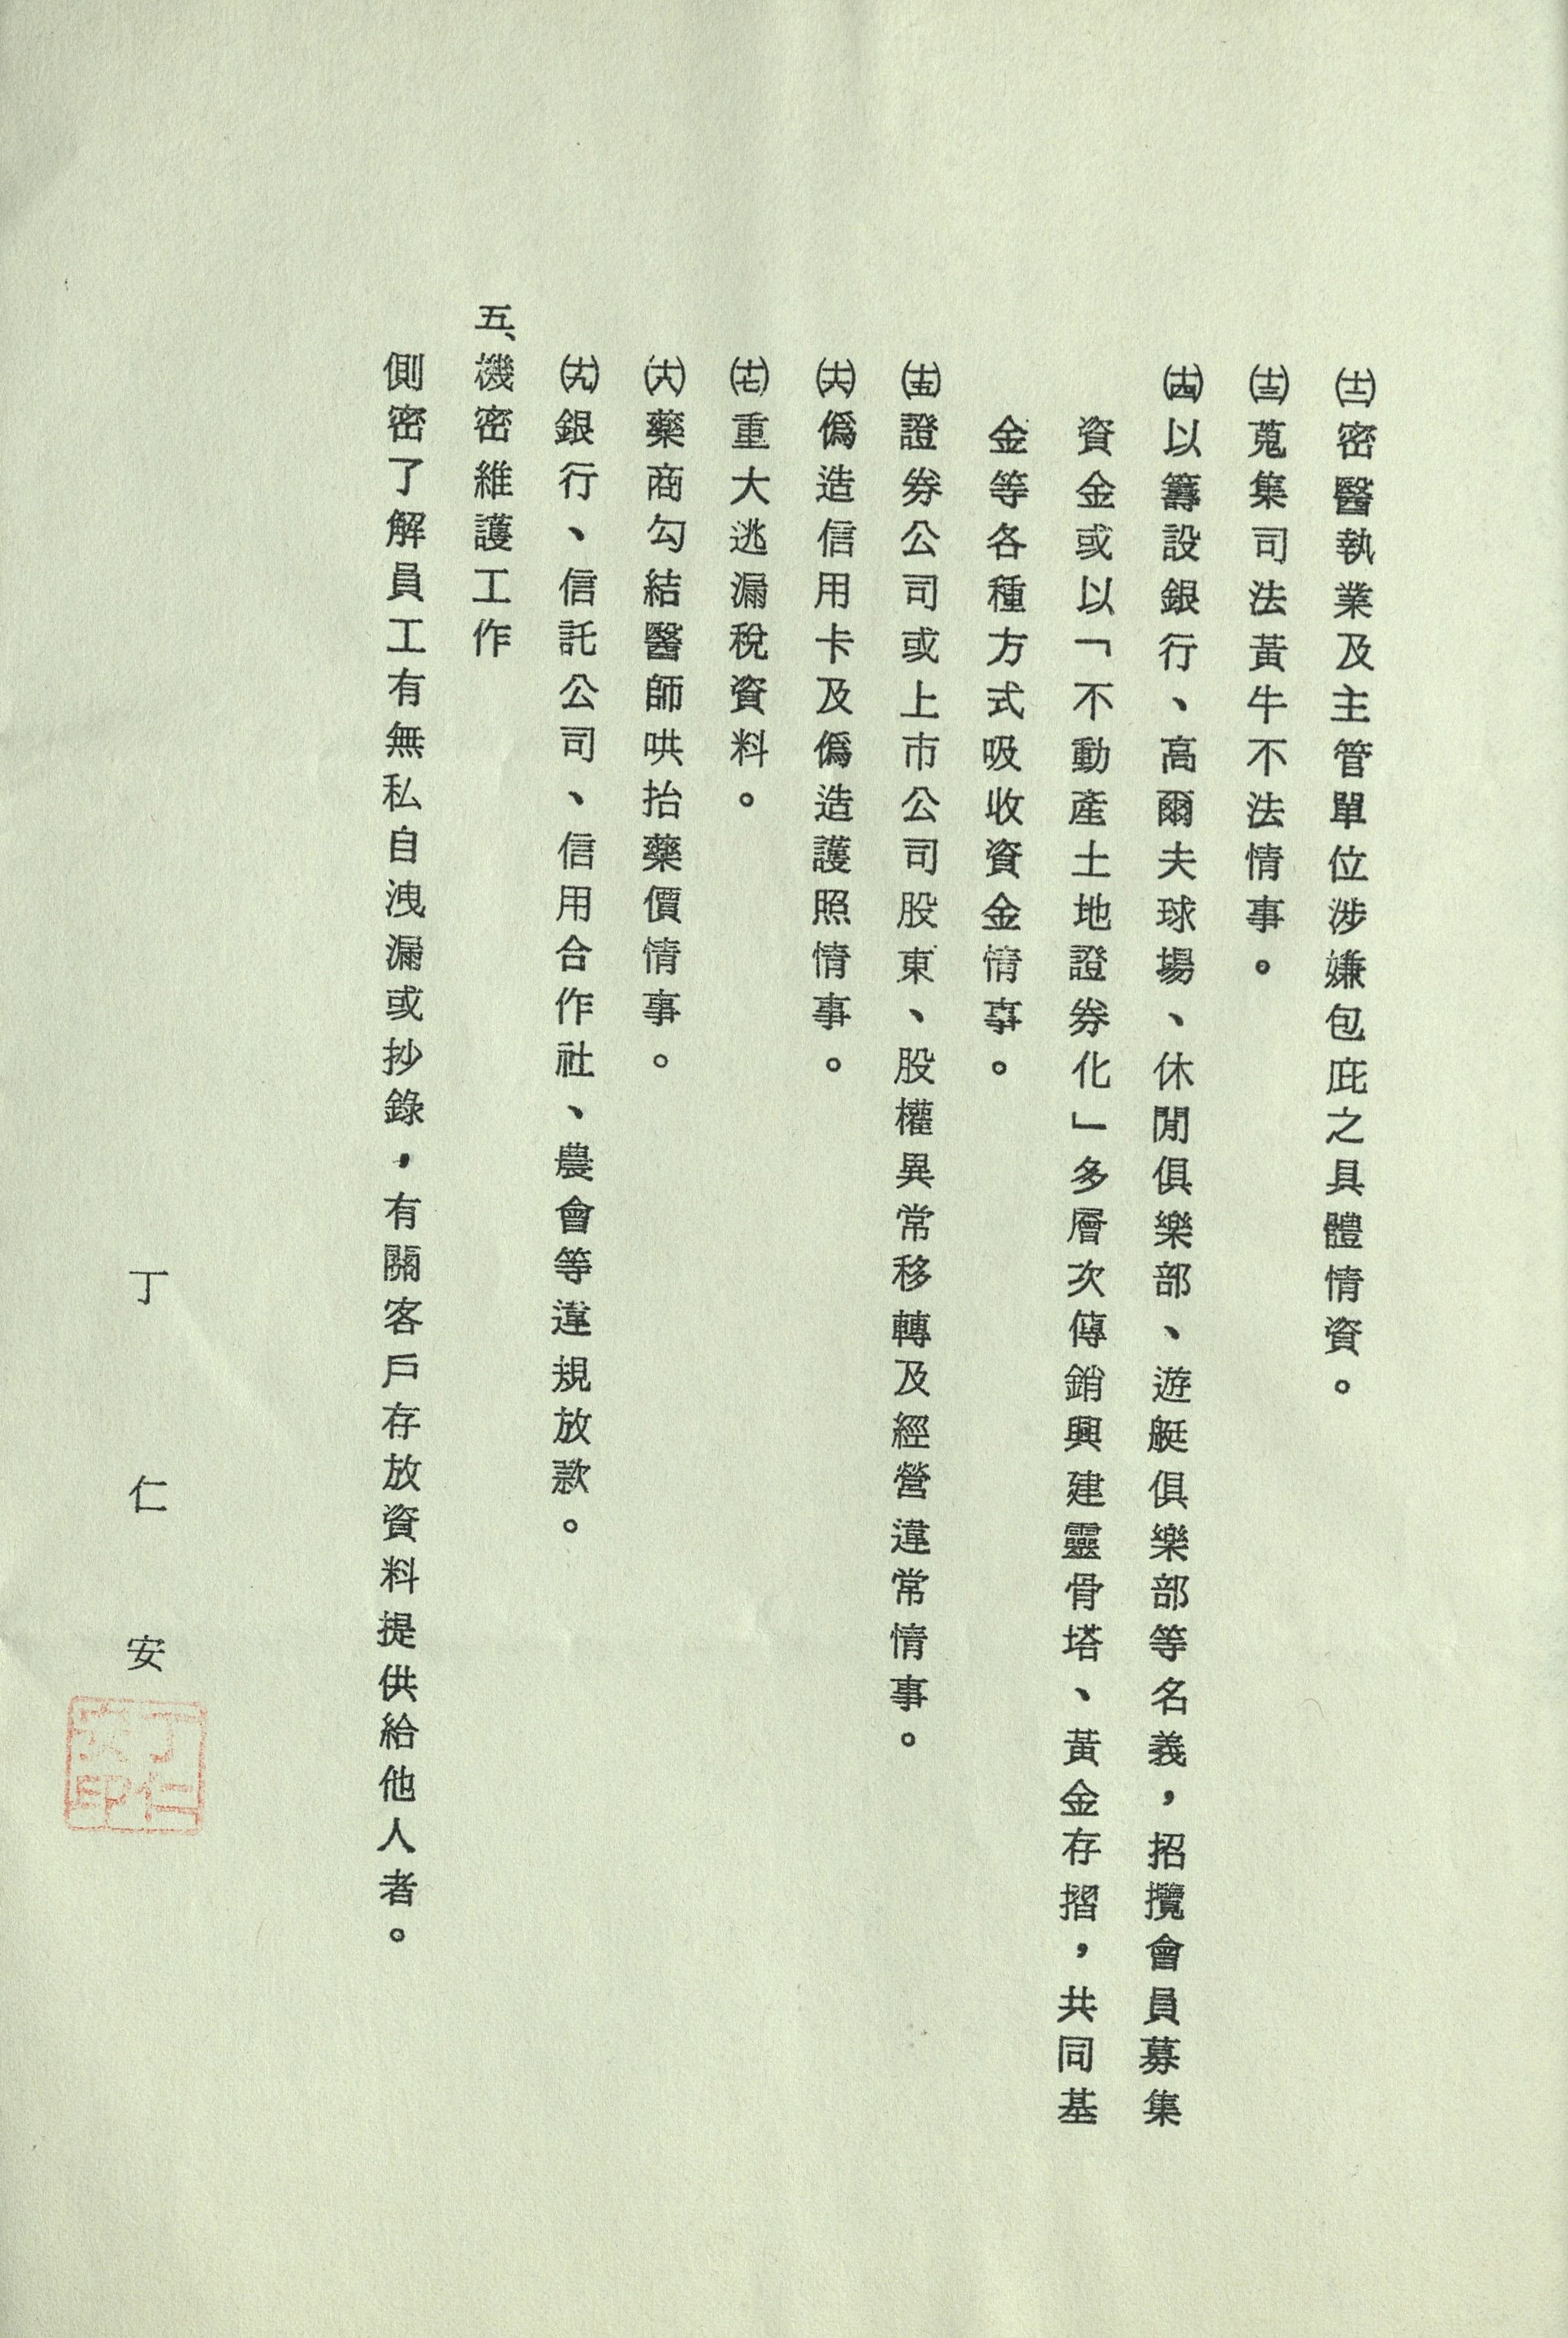 ㈩㈡密醫執業及主管單位涉嫌包庇之具體情資。
㈩㈢蒐集司法黃牛不法情事。
㈩㈣以籌設銀行、高爾夫球場、休閒俱樂部、遊艇俱樂部等名義，招攬會員募集
資金或以「不動產土地證券化」多層次傳銷興建靈骨塔、黃金存摺，共同基
金等各種方式吸收資金情事。
㈩㈤證券公司或上市公司股東、股權異常移轉及經營違常情事。
㈩㈥偽造信用卡及偽造護照情事。
㈩㈦重大逃漏稅資料。
㈩㈧藥商勾結醫師哄抬藥價情事。
㈩㈨銀行、信託公司、信用合作社、農會等違規放款。
五、機密維護工作
側密了解員工有無私自洩漏或抄錄，有關客戶存放資料提供給他人者。
丁仁安
丁仁安印